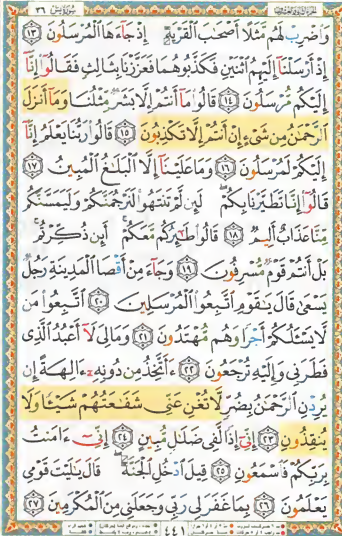 سورة يس ٣٦
وَاضْرِبْ لَهُم مَّثَلًا أَصْحَٰبَ الْقَرْيَةِ إِذْ جَآءَهَا الْمُرْسَلُونَ ١٣
إِذْ أَرْسَلْنَآ إِلَيْهِمُ اثْنَيْنِ فَكَذَّبُوهُمَا فَعَزَّزْنَا بِثَالِثٍ فَقَالُوٓا إِنَّآ
إِلَيْكُم مُّرْسَلُونَ ١٤ قَالُوا مَآ أَنتُمْ إِلَّا بَشَرٌ مِّثْلُنَا وَمَآ أَنزَلَ
الرَّحْمَٰنُ مِن شَىْءٍ إِنْ أَنتُمْ إِلَّا تَكْذِبُونَ ١٥ قَالُوا رَبُّنَا يَعْلَمُ إِنَّآ
إِلَيْكُمْ لَمُرْسَلُونَ ١٦ وَمَا عَلَيْنَآ إِلَّا الْبَلَٰغُ الْمُبِينُ ١٧
قَالُوٓا إِنَّا تَطَيَّرْنَا بِكُمْ لَئِن لَّمْ تَنتَهُوا لَنَرْجُمَنَّكُمْ وَلَيَمَسَّنَّكُم
مِّنَّا عَذَابٌ أَلِيمٌ ١٨ قَالُوا طَٰٓئِرُكُم مَّعَكُمْ أَئِن ذُكِّرْتُم
بَلْ أَنتُمْ قَوْمٌ مُّسْرِفُونَ ١٩ وَجَآءَ مِنْ أَقْصَا الْمَدِينَةِ رَجُلٌ
يَسْعَىٰ قَالَ يَٰقَوْمِ اتَّبِعُوا الْمُرْسَلِينَ ٢٠ اتَّبِعُوا مَن
لَّا يَسْـَٔلُكُمْ أَجْرًا وَهُم مُّهْتَدُونَ ٢١ وَمَا لِىَ لَآ أَعْبُدُ الَّذِى
فَطَرَنِى وَإِلَيْهِ تُرْجَعُونَ ٢٢ ءَأَتَّخِذُ مِن دُونِهِۦٓ ءَالِهَةً إِن
يُرِدْنِ الرَّحْمَٰنُ بِضُرٍّ لَّا تُغْنِ عَنِّى شَفَٰعَتُهُمْ شَيْـًٔا وَلَا
يُنقِذُونِ ٢٣ إِنِّىٓ إِذًا لَّفِى ضَلَٰلٍ مُّبِينٍ ٢٤ إِنِّىٓ ءَامَنتُ
بِرَبِّكُمْ فَاسْمَعُونِ ٢٥ قِيلَ ادْخُلِ الْجَنَّةَ قَالَ يَٰلَيْتَ قَوْمِى
يَعْلَمُونَ ٢٦ بِمَا غَفَرَ لِى رَبِّى وَجَعَلَنِى مِنَ الْمُكْرَمِينَ ٢٧
٤٤١